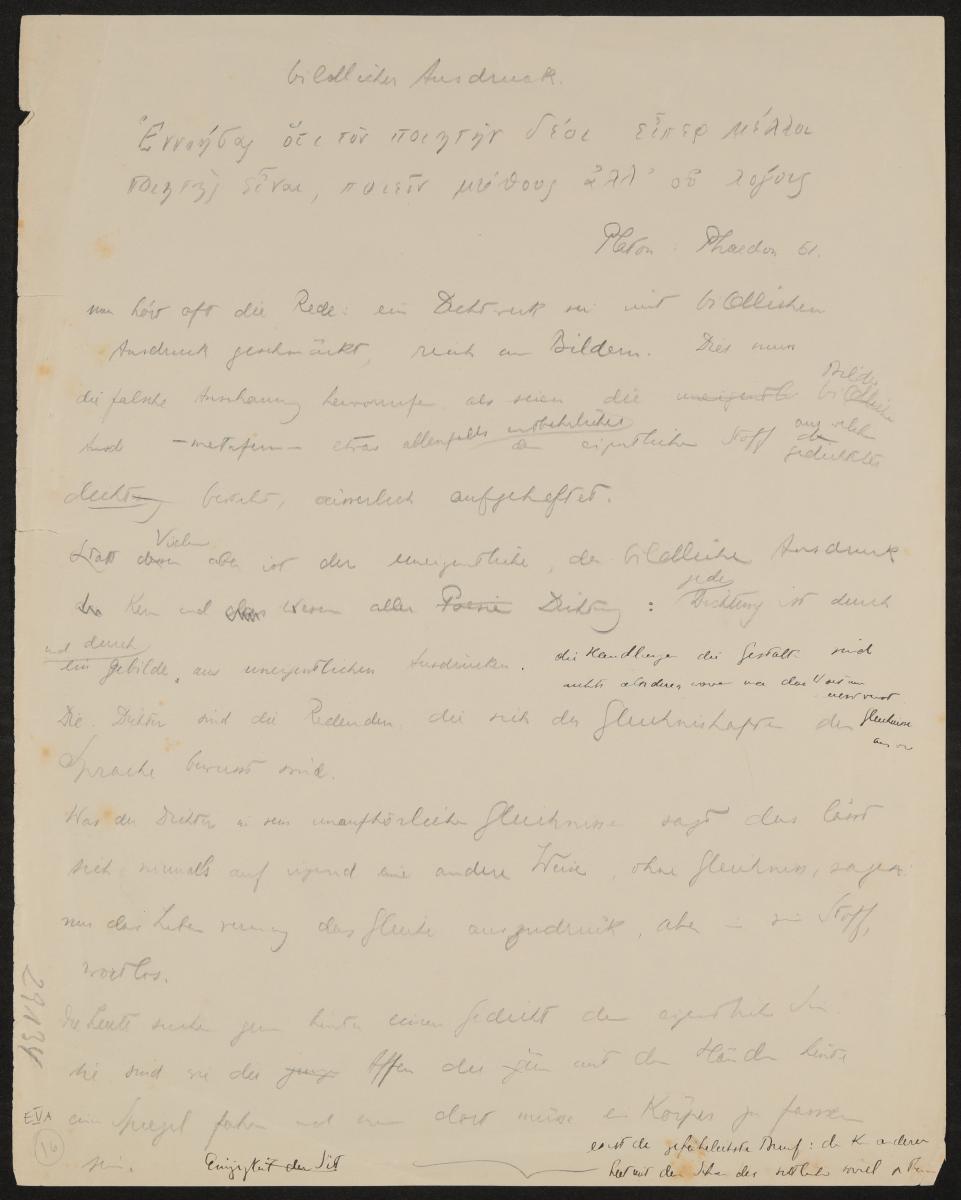 bildlicher Ausdruck.
Ἐννοήσας ὅτι τὸν ποιητὴν δέοι εἴπερ μέλλοι
ποιητὴς εἶναι, ποιεῖν μύθους ἀλλ' οὐ λογους
Platon: Phaedon 61.
man hört oft die Rede: ein Dichtwerk sei mit bildlichem
Ausdruck geschmückt, reich an Bildern. Dies muss
die falsche Anschauung hervorrufen als seien die uneigentl Bilder bildlichen
Ausd – metafern – etwas allenfalls entbehrliches dem eigentlichen Stoff aus welchem gedichtetes
dichtung besteht, äusserlich aufgeheftet.
Vielm aber ist der uneigentliche, der bildliche Ausdruck
Kern und Wesen aller Poesie Dichtung: jede Dichtung ist durch
und durch
ein Gebilde aus uneigentlichen Ausdrücken. die Handlungen die Gestalten sind
nichts anderes
Die Dichter sind die Redenden die sich des Gleichnishaften der Gleichnisse
Sprache bewusst sind.
Was der Dichter in sein unaufhörlichen Gleichnissen sagt das lässt
sich niemals auf irgend eine andere Weise, ohne Gleichniss, sagen:
nur das Leben vermag das Gleiche auszudrück, aber in sein Stoff,
wortlos.
Die Leute suchen gern hinter einem Gedicht den eigentlichen Sinn.
sie sind wie die junge Affen die mit den Händen hinter
ein Spiegel fahren und dort müsse ein Körper zu fassen
sein. Einzigkeit der
gefährlichste Beruf: der
29134
E IV A
16